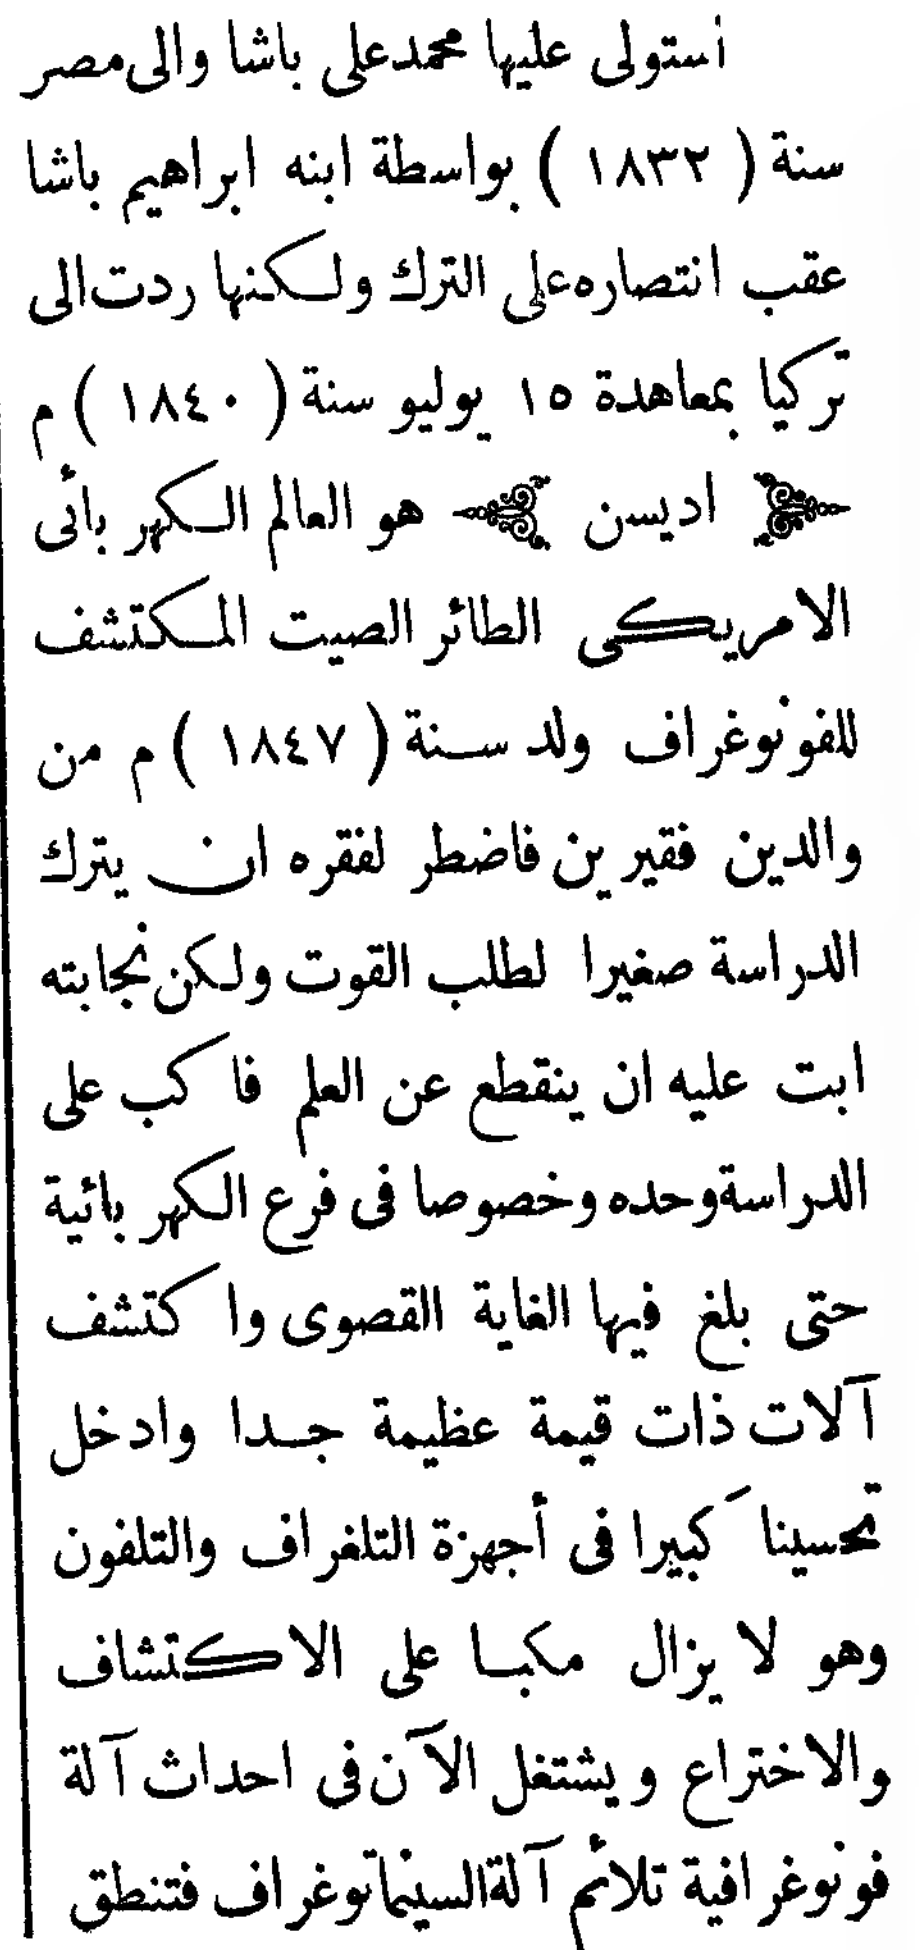 أستولى عليها محمد على باشا والى مصر
سنة ( ١٨٣٢ ) بواسطة ابنه ابراهيم باشا
عقب انتصاره على الترك ولكنها ردت الى
تركيا بمعاهدة ١٥ يوليو سنة ( ١٨٤٠ ) م
اديسن هو العالم الكهربائى
الامريكى الطائر الصيت المكتشف
للفونوغراف ولد سنة ( ١٨٤٧ ) م من
والدين فقيرين فاضطر لفقره ان يترك
الدراسة صغيرا لطلب القوت ولكن نجابته
ابت عليه ان ينقطع عن العلم فاكب على
الدراسة وحده وخصوصا فى فرع الكهربائية
حتى بلغ فيها الغاية القصوى واكتشف
آلات ذات قيمة عظيمة جدا وادخل
تحسينا كبيرا فى أجهزة التلغراف والتلفون
وهو لا يزال مكبا على الاكتشاف
والاختراع ويشتغل الآن فى احداث آلة
فونوغرافية تلائم آلة السينماتوغراف فتنطق